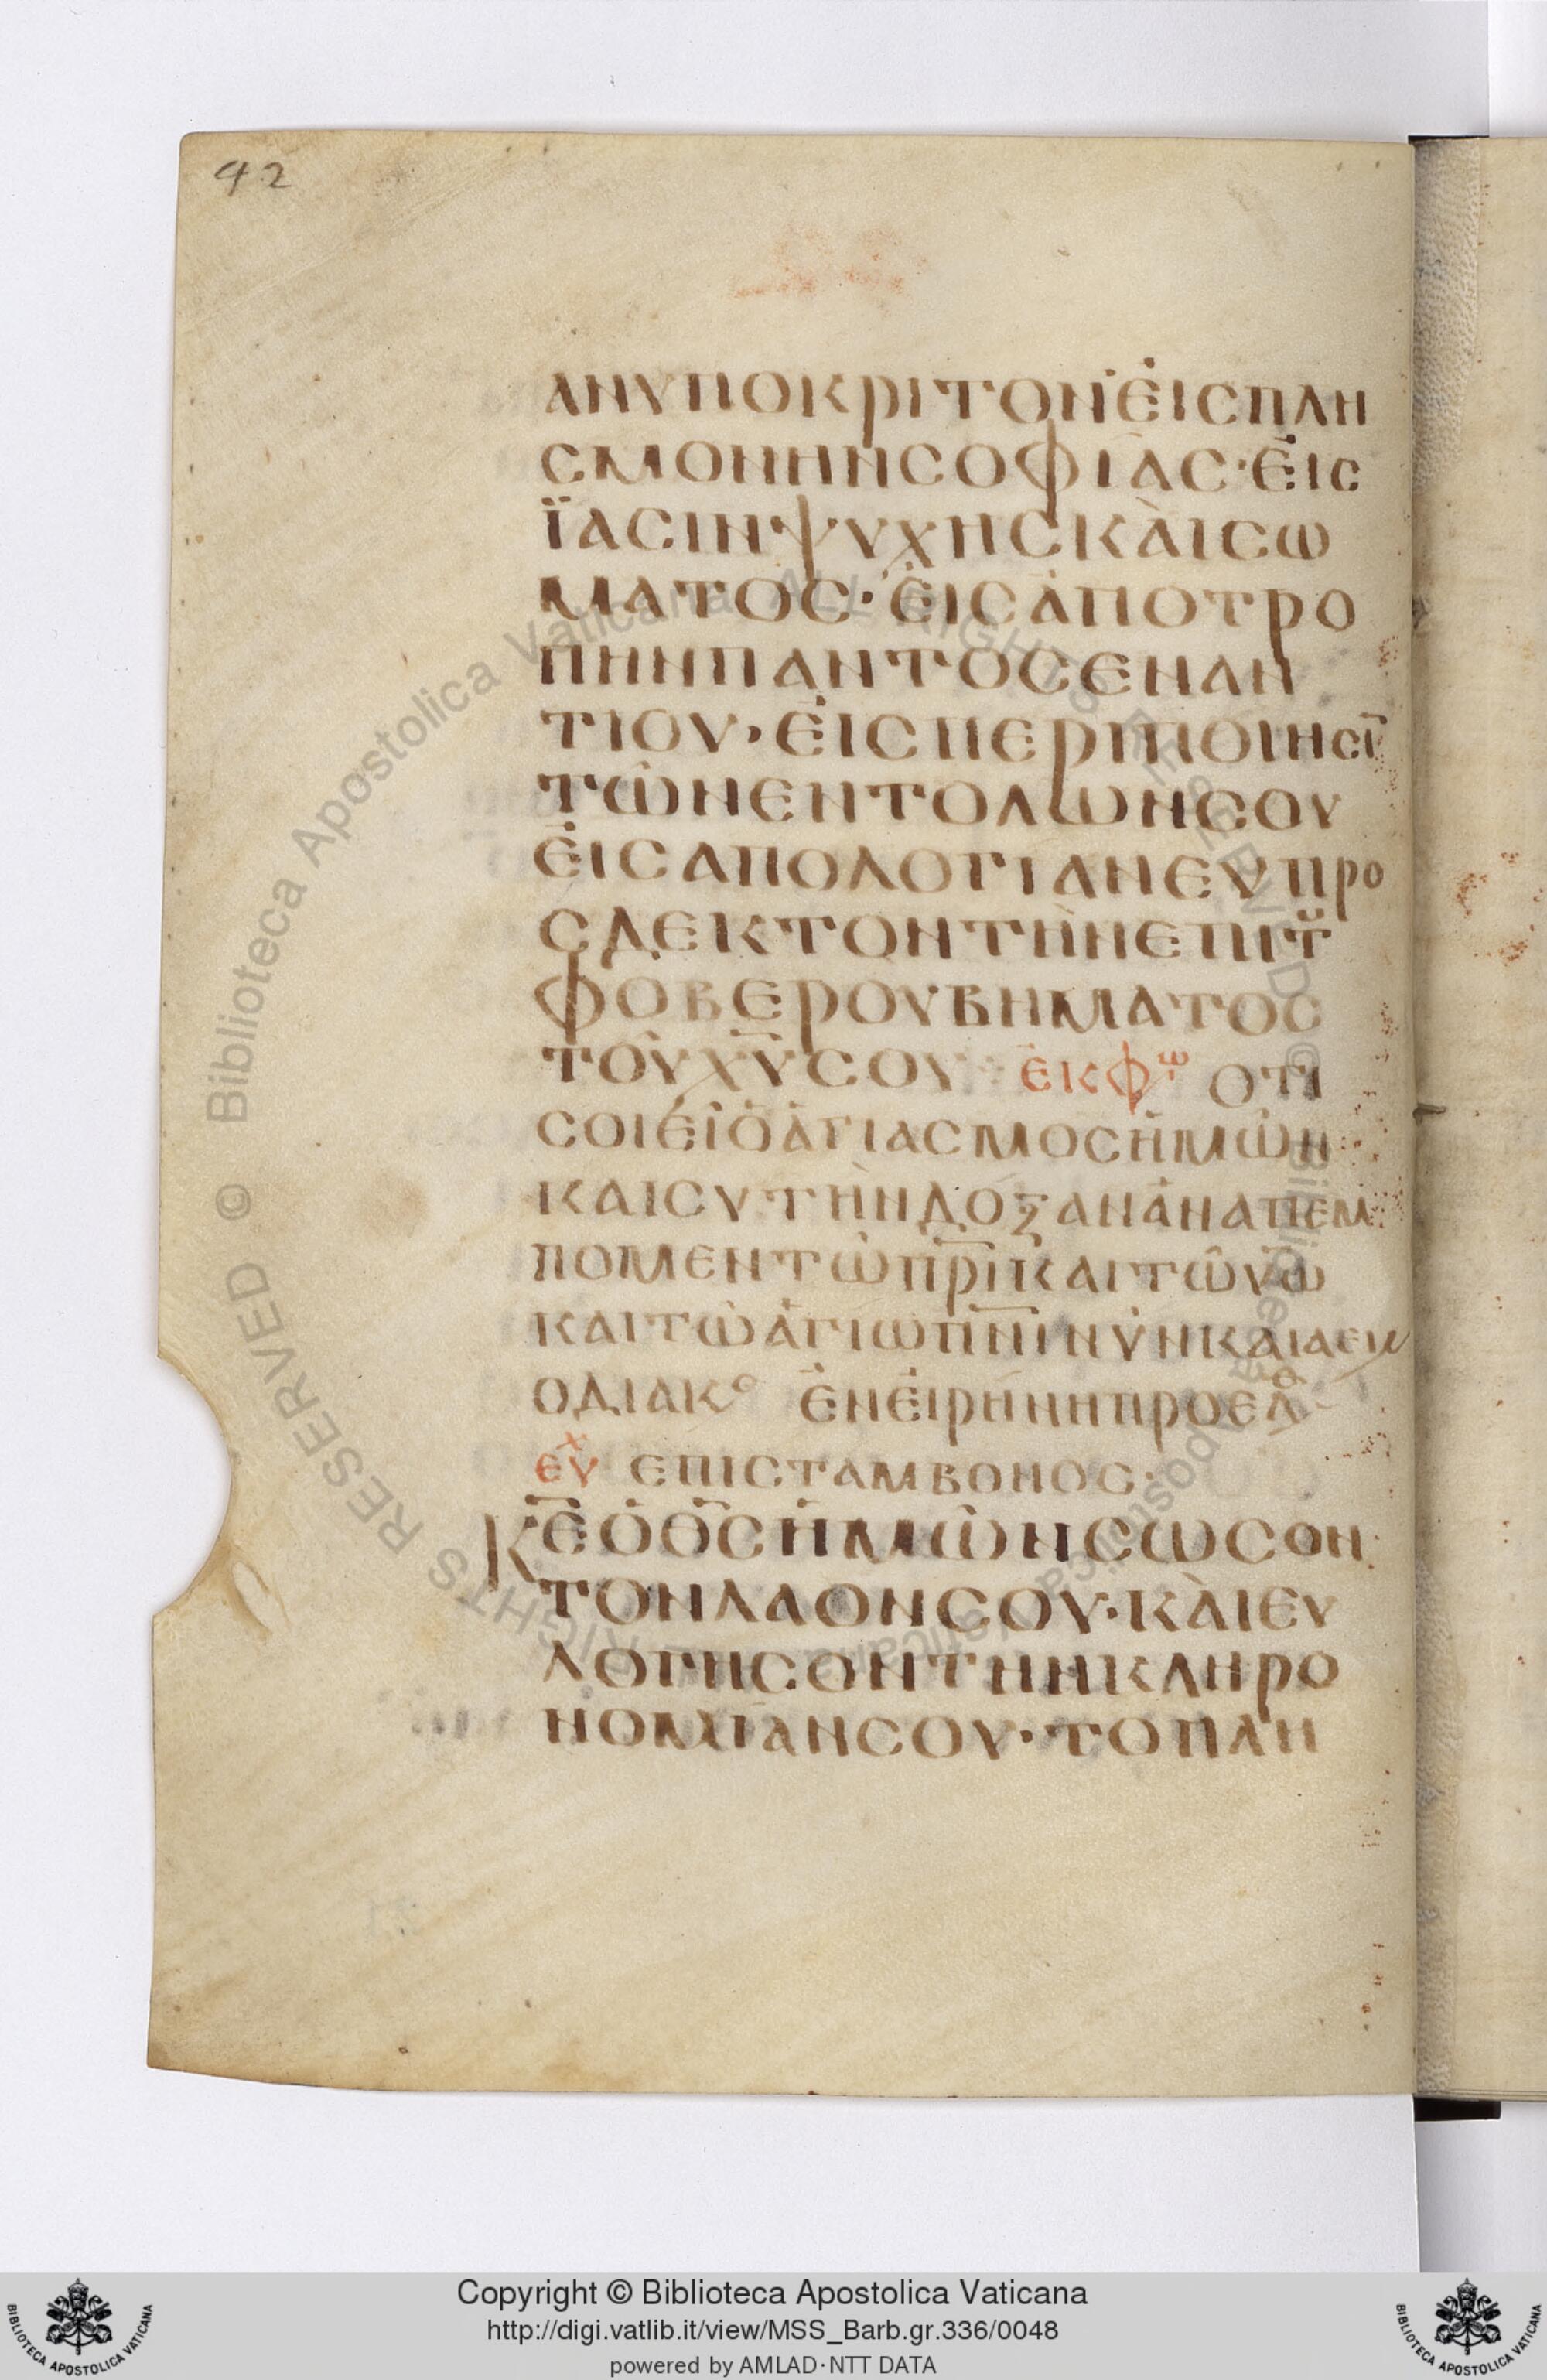 42
ΑΝΥΠΟΚΡΙΤΟΝ ἘΙΣ ΠΛΗ
ΣΜΟΝΗΝ ΣΟΦΙΑΣ· ἘΙΣ
ΪΑΣΙΝ ΨΥΧΗΣ ΚᾺΙ ΣΩ
ΜΑΤΟΣ· ἘΙΣ ἈΠΟΤΡΟ
ΠΗΝ ΠΑΝΤΟΣ ΕΝΑΝ
ΤΙΟΥ· ἘΙΣ ΠΕΡΙΠΟΙΗΣΙ̅
ΤΩΝ ΕΝΤΟΛΩΝ ΣΟΥ
ἘΙΣ ΑΠΟΛΟΓΙΑΝ ΕΥΠΡΟ
ΣΔΕΚΤΟΝ ΤῊΝ ΕΠΙ ΤȢ
ΦΟΒΕΡΟΥ ΒΗΜΑΤΟΣ
ΤΟΥ Χ̅Υ̅ ΣΟΥ ΕΚΦΩ ΟΤΙ
ΣΟΙ ΕΙ Ὁ ἉΓΙΑΣΜΟΣ ἩΜΩΝ
ΚΑΙ ΣΥ ΤῊΝ ΔΟΞΑΝ ἈΝΑΠΕΜ
ΠΟΜΕΝ ΤΩ Π̅Ρ̅Ι̅ ΚΑΙ ΤΩ Υ̅Ω̅
ΚΑΙ ΤΩ ἉΓΙΩ Π̅Ν̅Ι̅ ΝΥΝ ΚΑΙ ΑΕΙ Κ
Ο ΔΙΑΚΟ ἘΝ ἘΙΡΗΝΗ ΠΡΟΕΛΘ
ΕΥΧ ΕΠΙΣΤΑΜΒΟΝΟΣ·
Κ̅Ε̅ Ὁ Θ̅Σ̅ ἩΜΩΝ ΣΩΣΟΝ
ΤΟΝ ΛΑΟΝ ΣΟΥ· ΚᾺΙ ΕΥ
ΛΟΓΗΣΟΝ ΤΗΝ ΚΛΗΡΟ
ΝΟΜΙΑΝ ΣΟΥ· ΤΟ ΠΛΗ
© Biblioteca Apostolica Vaticana ALL RIGHTS RESERVED © Biblioteca Apostolica Vaticana ALL RIGHTS RESERVED
Copyright © Biblioteca Apostolica Vaticana
http://digi.vatlib.it/view/MSS_Barb.gr.336/0048
powered by AMLAD·NTT DATA
BIBLIOTECA APOSTOLICA VATICANA
BIBLIOTECA APOSTOLICA VATICANA